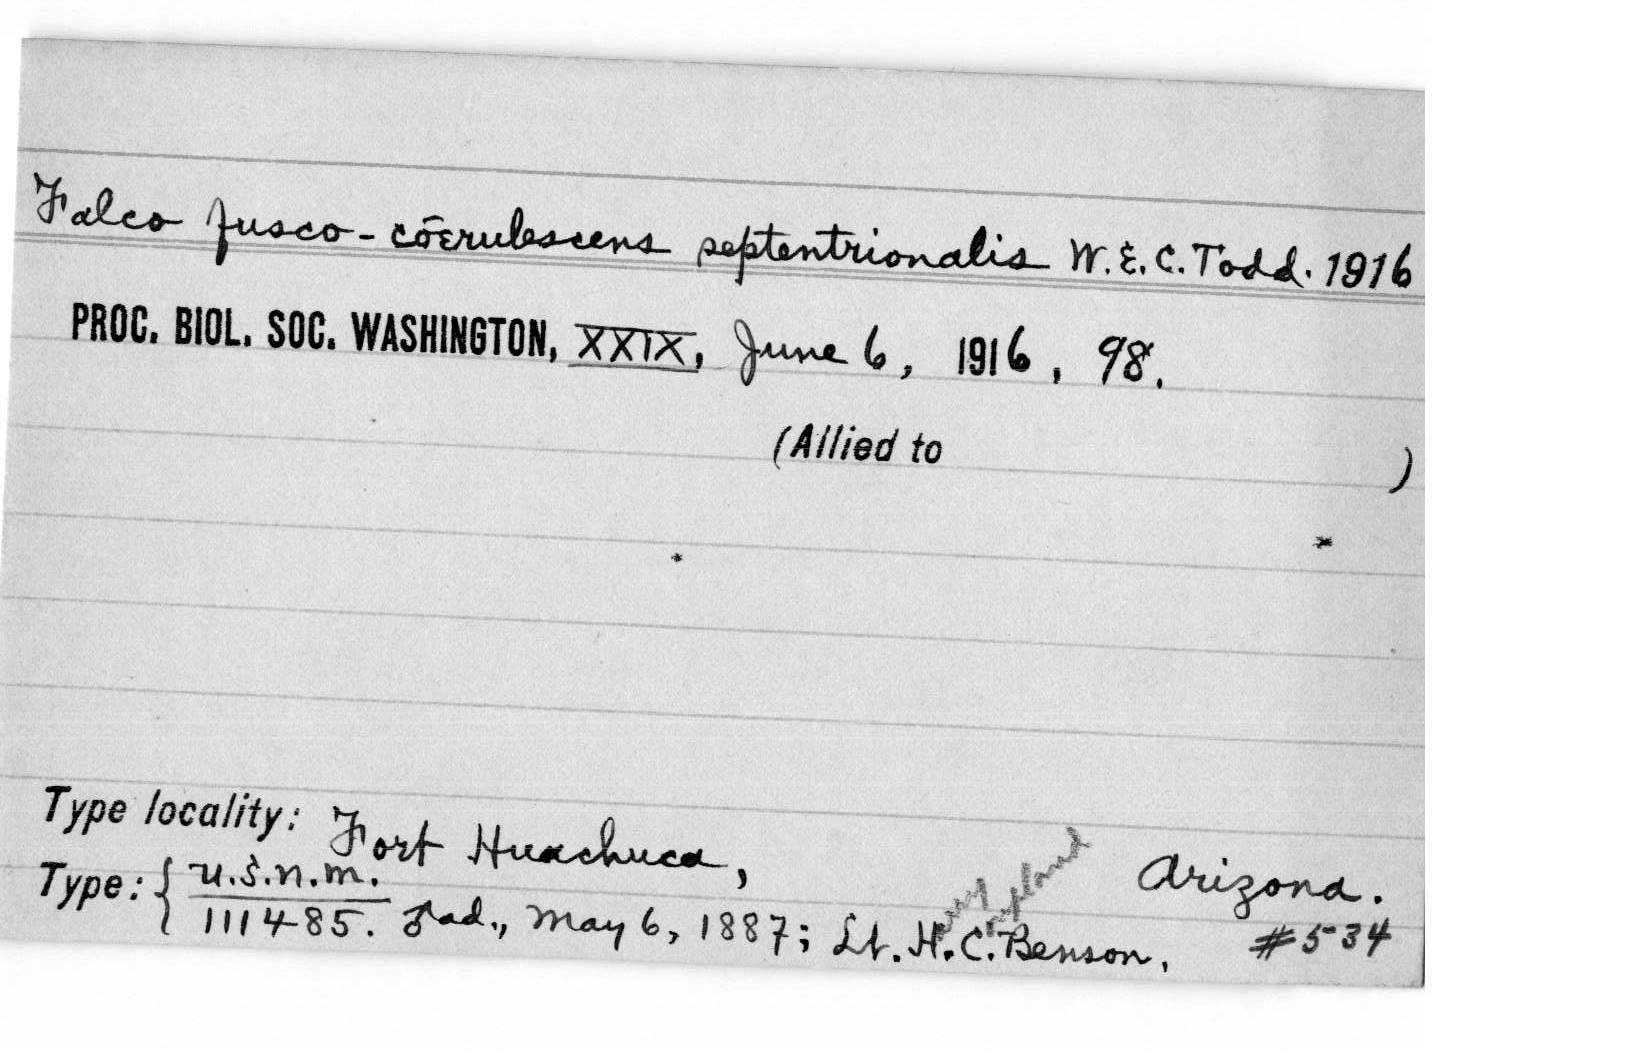 Falco fusco-cōerulescens septentrionalis W.E.C.Todd. 1916
PROC. BIOL. SOC. WASHINGTON, XXIX, June 6, 1916, 98.
(Allied to )
Type locality: Fort Huachuca, Arizona.
Type: { U.S.n.m.
111485. ♂ad., May 6, 1887; Lt. H.C. Benson. #534